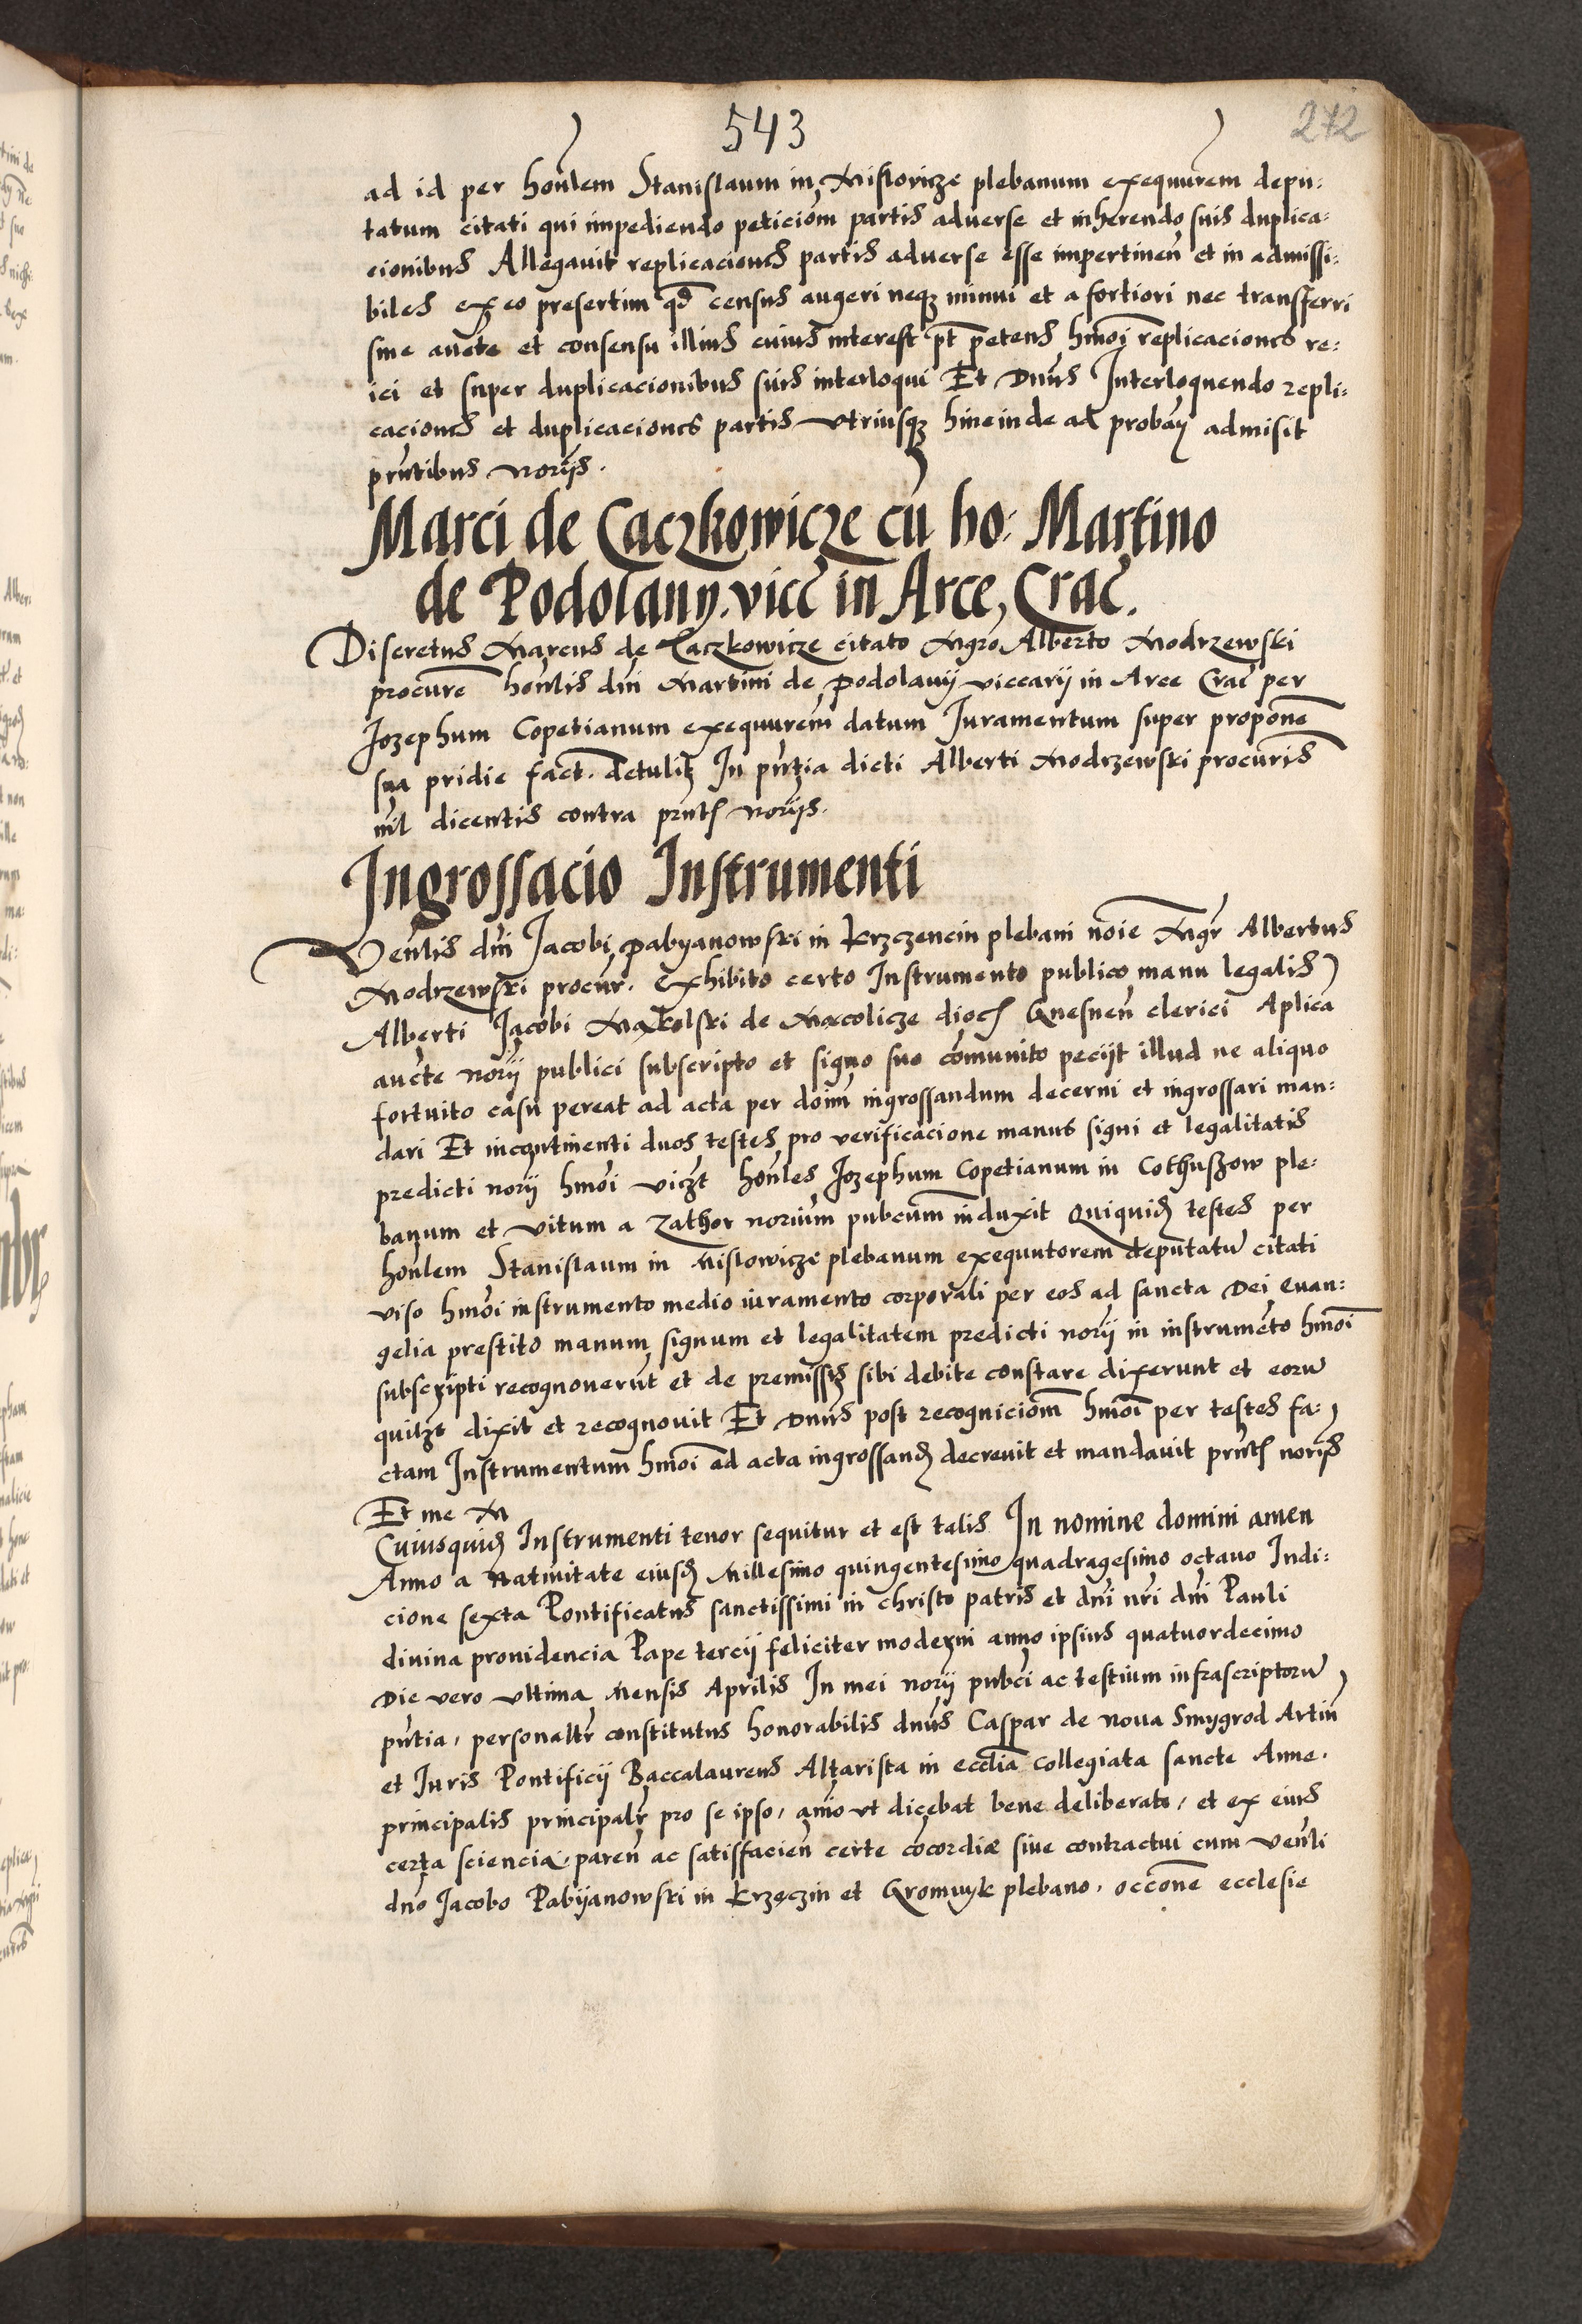 543
272
ad id per hon̄lem Stanislaum in Mislovicze plebanum exequūrem depu:
tatum citati qui impediendo peticiōm partis adverse et inherendo suis duplica:
cionibus Allegavit replicaciones partis adverse esse impertineñ et in admissi:
biles ex eo presertim qđ census augeri neqȝ minui et a fortiori nec transferri
sine aucte et consensu illius cuius interest pt̄ petens hmōi replicaciones re:
ici et super duplicacionibus suis interloqui Et Dnūs Interloquendo repli:
caciones et duplicaciones partis utriusqȝ hincinde ad proban̄ admisit
prn̄tibus norijs.
Marci de Caczkowicze cū ho: Martino
de Podolany. vicc̄ in Arce, Crac̄.
Discretus Marcus de Caczkowicze citato Mgrō Alberto Modrzewski
procurē hon̄lis dn̄i Martini de Podolanij viccarij in Arce Crac̄ per
Jozephum Copetianum exequūrem datum Juramentum super proponē
sua pridie fact. detulit In pn̄tia dicti Alberti Modrzewski procurīs
nīl dicentis contra prn̄tƷ norijs.
Ingrossacio Instrumenti
Ven̄lis dn̄i Jacobi Pabyanowski in Krzczencin plebani noīe Mgr̄ Albertus
Modrzewski procūr. Exhibito certo Instrumento publico manu legalis
Alberti Jacobi Mąkolski de Mącolicze diocƷ Gnesneñ clerici Aplica
aucte norij publici subscripto et signo suo cōmunito pecijt illud ne aliquo
fortuito casu pereat ad acta per doīm ingrossandum decerni et ingrossari man:
dari Et incontinenti duos testes pro verificacione manus signi et legalitatis
predicti norij hmōi viczt hon̄les Jozephum Copetianum in Cothuszow ple:
banum et vitum a Zathor noriūm pubcum̄ induxit QuiquidƷ testes per
hon̄lem Stanislaum in Mislowicze plebanum exequutorem deputatū citati
viso hmōi instrumento medio iuramento corporali per eos ad sancta Dei Evan:
gelia prestito manum signum et legalitatem predicti norij in instrumēto hmōi
subscripti recognoverūt et de premissis sibi debite constare dixerunt et eorū
quilȝt dixit et recognovit Et Dnūs post recogniciōm hmōi per testes fa:
ctam Instrumentum hmōi ad acta ingrossandƷ decrevit et mandavit prn̄tƷ norijs
Et me M
CuiusquidƷ Instrumenti tenor sequitur et est talis In nomine domini amen
Anno a Nativitate eiusdƷ Millesimo quingentesimo quadragesimo octavo Indi:
cione sexta Pontificatus sanctissimi in christo patris et dn̄i nr̄i dn̄i Pauli
divina providencia Pape tercij feliciter moderni anno ipsius quatuordecimo
Die vero ultima Mensis Aprilis In mei norij pubci ac testium infrascriptorū
pn̄tia, personaltr̄ constitutus honorabilis dnūs Caspar de Nova Smygrod Artiū
et Juris Pontificij Baccalaureus Altarista in eccl̄ia collegiata sancte Anne.
principalis principalr̄ pro se ipso, anīo ut dicebat bene deliberato, et ex eius
certa sciencia, pareñ ac satisfacieñ certe cōcordiæ sive contractui cum ven̄li
dnō Jacobo Pabijanowski in Krzęczin et Gromnyk plebano, occōnē ecclesie